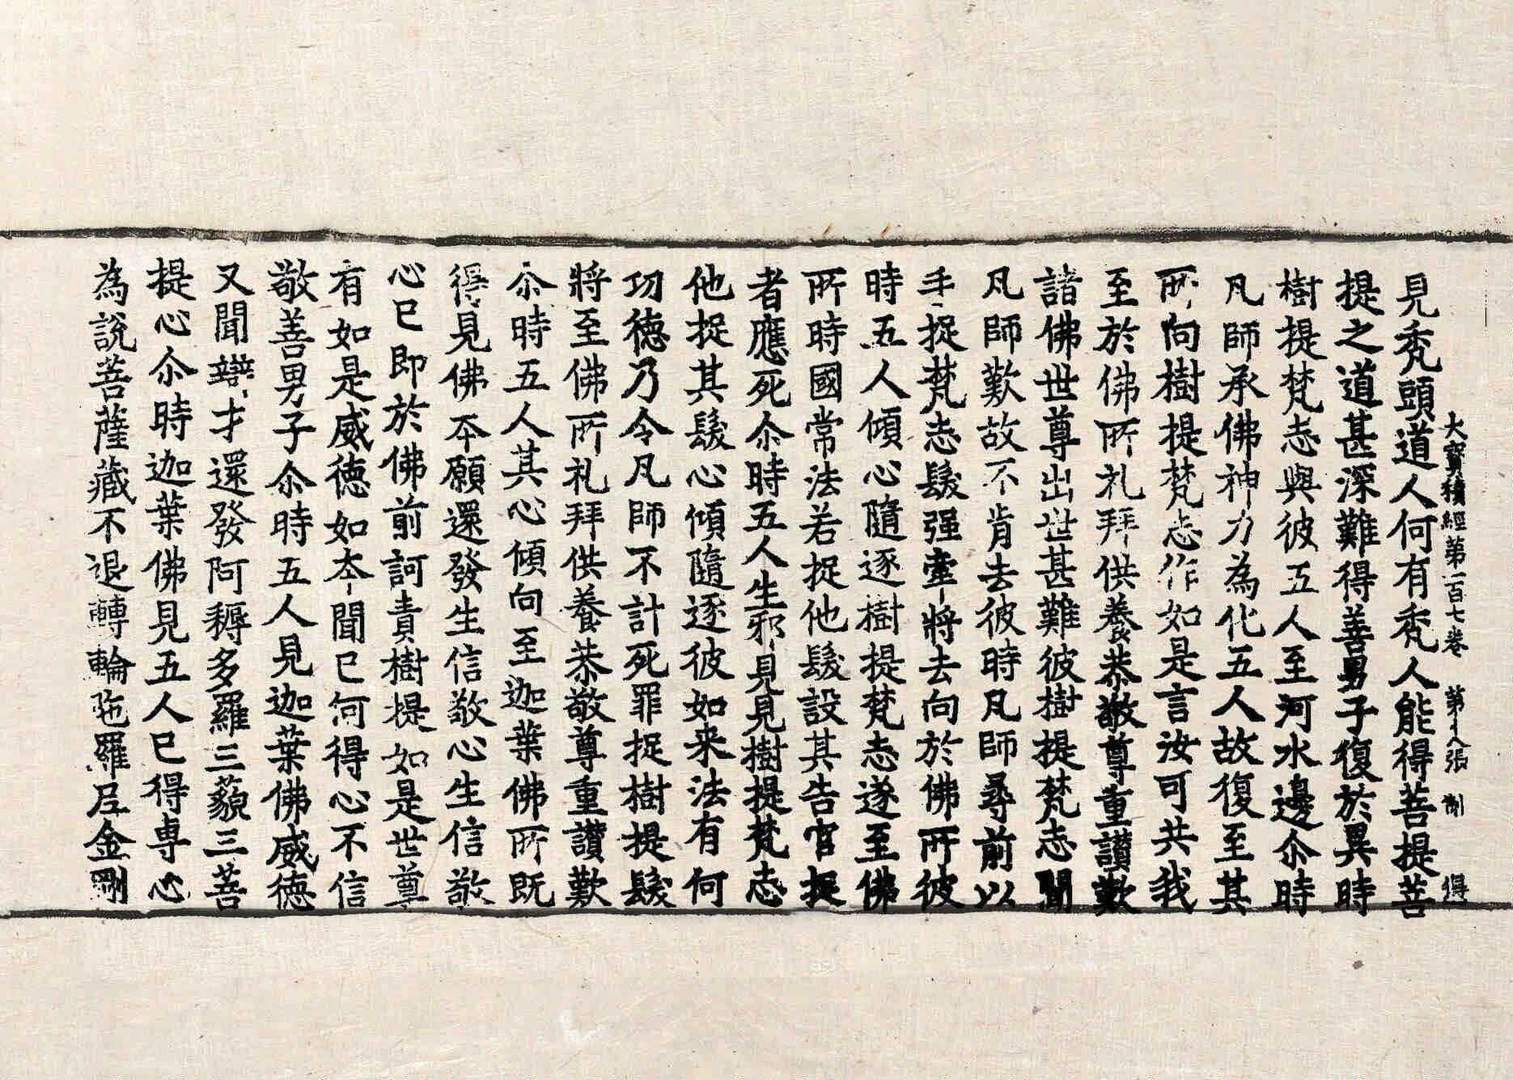 大寶積經第一百七卷 第十八張 制 得
見禿頭道人何有禿人能得菩提菩
提之道甚深難得善男子復於異時
樹提梵志與彼五人至河水邊尒時
凡師承佛神力為化五人故復至其
所向樹提梵志作如是言汝可共我
至於佛所礼拜供養恭敬尊重讃歎
諸佛世尊出世甚難彼樹提梵志聞
凡師歎故不肯去彼時凡師尋前以
手捉梵志髮强牽將去向於佛所彼
時五人傾心隨逐樹提梵志遂至佛
所時國常法若捉他髮設其告官捉
者應死尒時五人生邪見見樹提梵志
他捉其髮心傾隨逐彼如来法有何
功德乃令凡師不計死罪捉樹提髮
將至佛所礼拜供養恭敬尊重讃歎
尒時五人其心傾向至迦葉佛所既
得見佛夲願還發生信敬心生信敬
心已即於佛前訶責樹提如是世尊
有如是威德如夲聞已何得心不信
敬善男子尒時五人見迦葉佛威德
又聞辯才還發阿耨多羅三藐三菩
提心尒時迦葉佛見五人已得専心
為說菩薩藏不退轉輪陁羅尼金剛